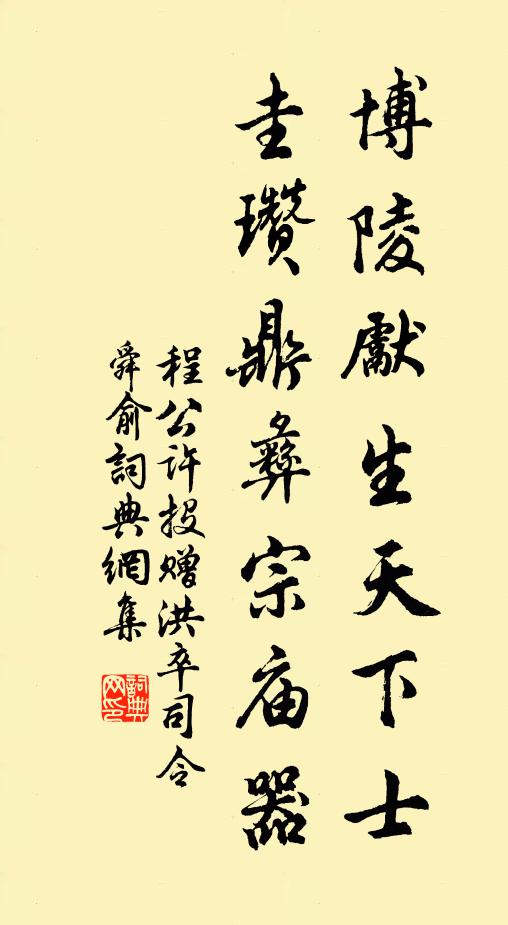 博陵獻生天下士
圭瓚鼎彝宗庙器
程公许投赠洪卒司令
舜俞詞典網集
詞典网印